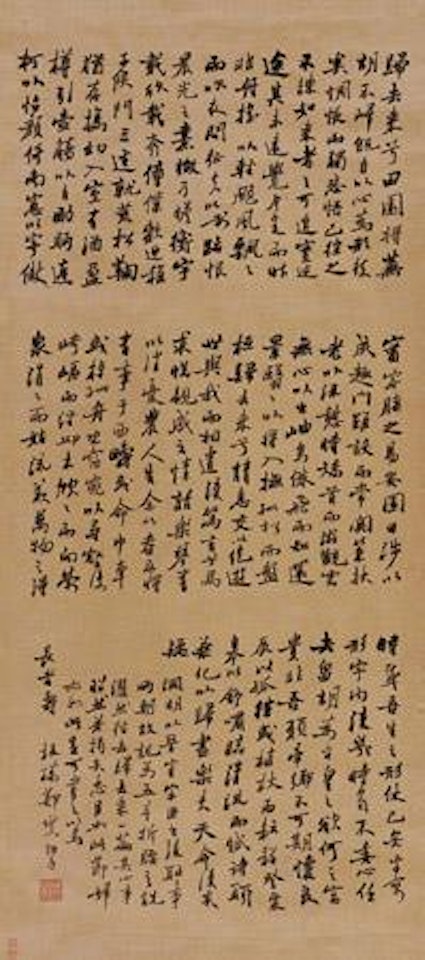 歸去來兮田園將蕪
胡不歸既自以心為形役
奚惆悵而獨悲悟已往之
不諫知來者之可追實迷
途其未遠覺今是而昨
非舟搖搖以輕颺風飄飄
而吹衣問征夫以前路恨
晨光之熹微乃瞻衡宇
載欣載奔僮僕歡迎稚
子候門三逕就荒松鞠
猶存攜幼入室有酒盈
樽引壺觴以自酌眄庭
柯以怡顏倚南窗以寄傲
審容膝之易安園日涉以
成趣門雖設而常關策扶
老以流憩時矯首而遐觀雲
無心以出岫鳥倦飛而知還
景翳翳以將入撫孤松而盤
桓歸去來兮請息交以絕遊
世與我而相違復駕言兮焉
求悅親戚之情話樂琴書
以消憂農人告余以春及將
有事于西疇或命巾車
或棹孤舟既窈窕以尋壑復
崎嶇而經邱木欣欣而向榮
泉涓涓而始流羨萬物之得
時感吾生之行休已矣乎寓
形宇內復幾時曷不委心任
去留胡為乎遑遑欲何之富
貴非吾願帝鄉不可期懷良
辰以孤往或植杖而耘耔登東
皋以舒嘯臨清流而賦詩聊
乘化以歸盡樂夫天命復奚
疑
淵明以
為五斗折腰之
去來一篇其